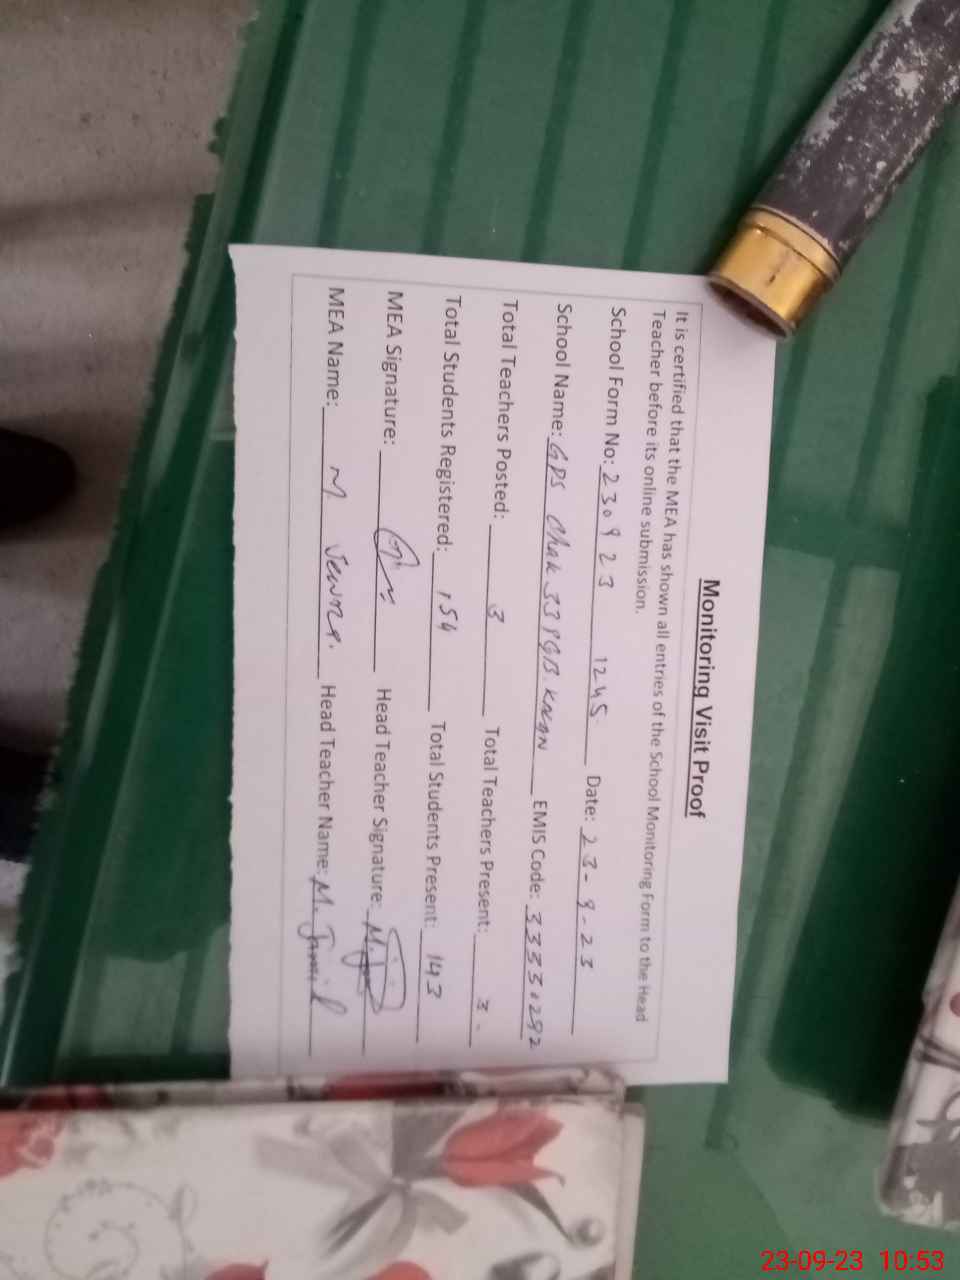 Monitoring Visit Proof
It is certified that the MEA has shown all entries of the School Monitoring Form to the Head
Teacher before its online submission.
School Form No: 230923 1245 Date: 23-9-23
School Name: GPS Chak 338GB. EMIS Code: 33330292
Total Teachers Posted: 3 Total Teachers Present: 3
Total Students Registered: 154 Total Students Present: 143
MEA Signature: Head Teacher Signature:
MEA Name: M Head Teacher Name: M. Jamil
23-09-23 10:53